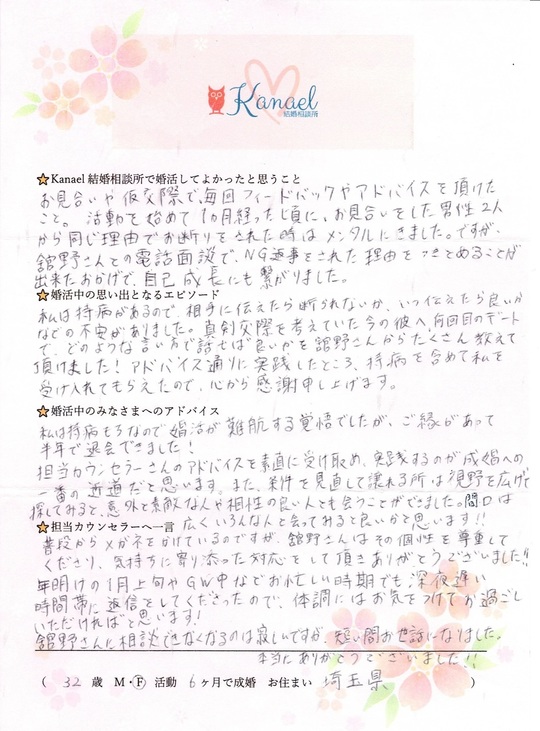 Kanael
結婚相談所
★Kanael 結婚相談所で婚活してよかったと思うこと
お見合いや仮交際で、毎回フィードバックやアドバイスを頂けた
こと。活動を始めて1ヵ月経った頃に、お見合いをした男性2人
から同じ理由でお断りをされた時はメンタルにきました。ですが、
舘野さんとの電話面談で、NG返事をされた理由をつきとめることが
出来たおかげで、自己成長にも繋がりました。
★婚活中の思い出となるエピソード
私は持病があるので、相手に伝えたら断られないか、いつ伝えたら良いか
などの不安がありました。真剣交際を考えていた今の彼へ、何回目のデート
で、どのような言い方で話せば良いかを舘野さんからたくさん教えて
頂けました！アドバイス通りに実践したところ、持病を含めて私を
受け入れてもらえたので、心から感謝申し上げます。
★婚活中のみなさまへのアドバイス
私は持病もちなので婚活が難航する覚悟でしたが、ご縁があって
半年で退会できました！
担当カウンセラーさんのアドバイスを素直に受け取め、実践するのが成婚への
一番の近道だと思います。また、条件を見直して譲れる所は視野を広げて
探してみると、意外と素敵な人や相性の良い人とも会うことができました。間口は
広くいろんな人と会ってみると良いかと思います!!
★担当カウンセラーへ一言
普段からメガネをかけているのですが、舘野さんはその個性を尊重して
くださり、気持ちに寄り添った対応をして頂きありがとうございました!!
年明けの1月上旬やGW中などお忙しい時期でも深夜遅い
時間帯に返信をしてくださったので、体調にはお気をつけてお過ごし
いただければと思います!
舘野さんに相談できなくなるのは寂しいですが、短い間お世話になりました。
本当にありがとうございました!!
( 32 歳 M・Ⓕ 活動 6ヶ月で成婚 お住まい 埼玉県 )